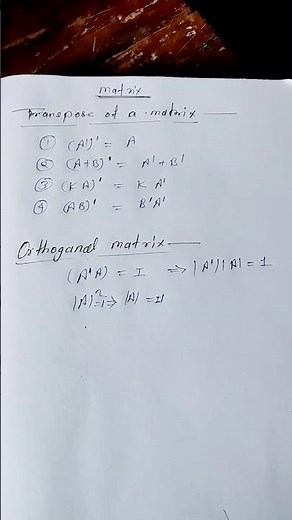 matrix
Transpose of a matrix
① (A')' = A
② (A+B)' = A' + B'
③ (KA)' = K A'
④ (AB)' = B'A'
Orthoganal matrix
(A'A) = I ⇒ |A'||A| = 1
|A|²=1 ⇒ |A| = ±1